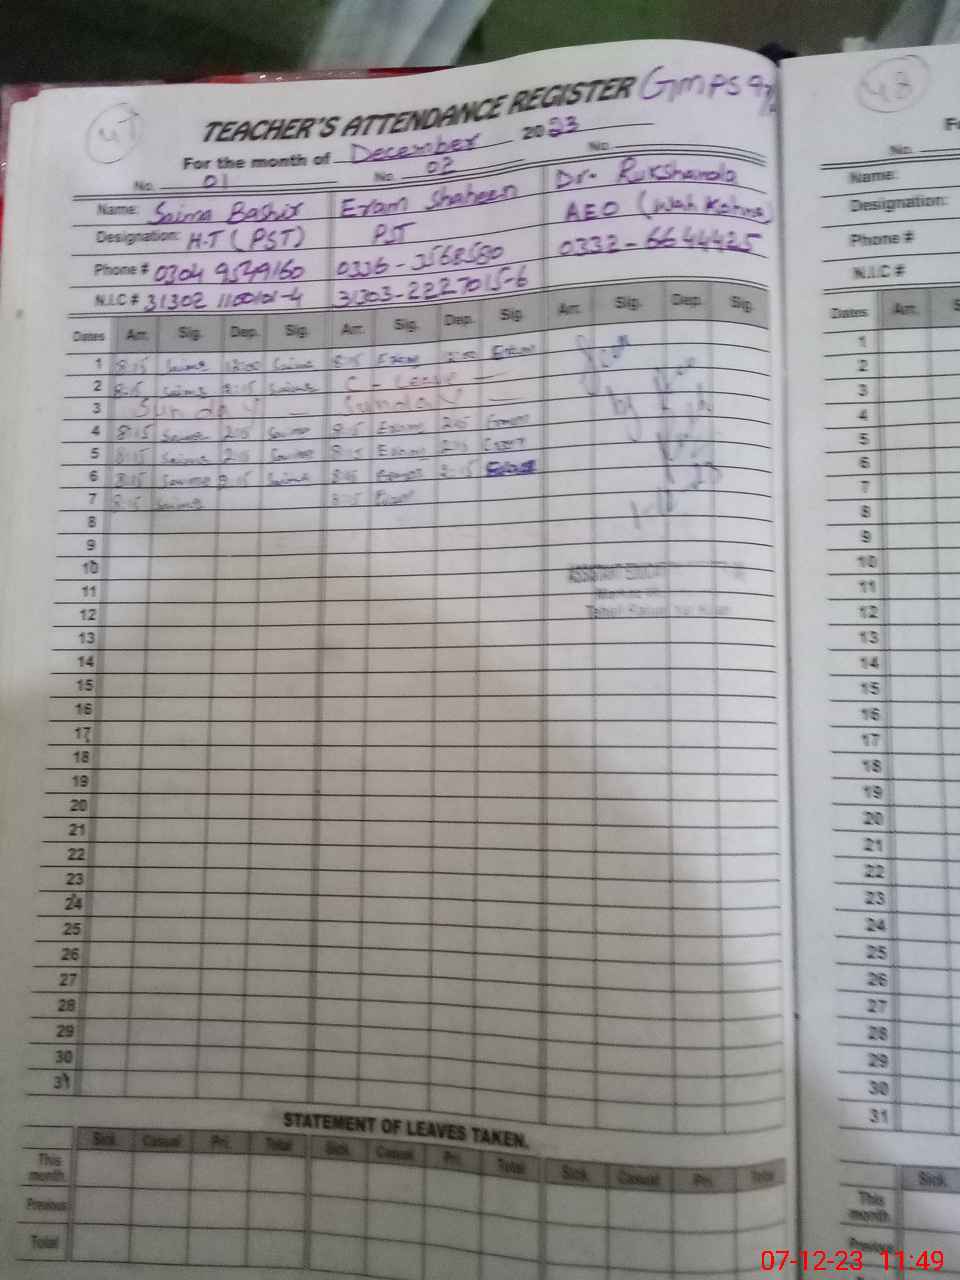 47
TEACHER'S ATTENDANCE REGISTER GMPS 97/
For the month of December 2023
No. 01 No. 02 No.
Name: Saima Bashir Eram Shaheen Dr. Rukshanda
Designation: H.T (PST) PST AEO (Wah Kahna)
Phone # 0304 9549160 0336-3568580 0332-6644425
N.I.C # 31302 1100101-4 31303-2227015-6
Dates Arr. Sig. Dep. Sig. Arr. Sig. Dep. Sig. Arr. Sig. Dep. Sig.
1 8:15 Saima 12:00 Saima 8:15 Eram 12:00 Eram
2 8:15 Saima 2:15 Saima C - Leave -
3 Sunday - Sunday -
4 8:15 Saima 2:15 Saima 8:15 Eram 2:15 Eram
5 8:15 Saima 2:15 Saima 8:15 Eram 2:15 Eram
6 8:15 Saima 2:15 Saima 8:15 Eram 2:15 Eram
7 8:15 Saima 8:15 Eram
8
9
10
11
12
13
14
15
16
17
18
19
20
21
22
23
24
25
26
27
28
29
30
31
ASSISTANT EDUCATION
Tehsil
STATEMENT OF LEAVES TAKEN.
Sick. Casual Pri. Total Sick. Casual Pri. Total Sick. Casual Pri. Total
This month
Previous
Total
48
No.
Name:
Designation:
Phone #
N.I.C #
Dates Arr.
1
2
3
4
5
6
7
8
9
10
11
12
13
14
15
16
17
18
19
20
21
22
23
24
25
26
27
28
29
30
31
Sick.
This month
Previous
07-12-23 11:49